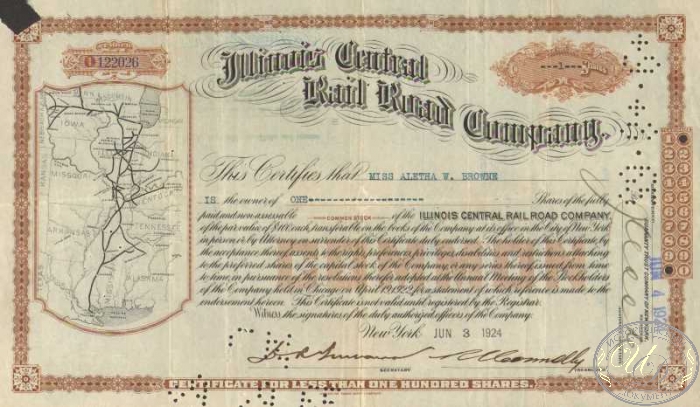 O 122026
--1-- Shares
Illinois Central
Rail Road Company.
IOWA
MISSOURI
ARKANSAS
KENTUCKY
TENNESSEE
ALABAMA
This Certifies that MISS ALETHA W. BROWNE
IS the owner of ONE Shares of the fully
paid and non assessable COMMON STOCK of the ILLINOIS CENTRAL RAIL ROAD COMPANY,
of the par value of $100 each, transferable on the books of the Company at its office in the City of New York
in person or by Attorney on surrender of this Certificate duly endorsed. The holder of this Certificate, by
the acceptance thereof, assents to the rights, preferences, privileges, disabilities, and restrictions attaching
to the preferred shares of the capital stock of the Company, or any series thereof, issued from time
to time, in pursuance of the resolutions therefor adopted at the Annual Meeting of the Stockholders
of the Company held in Chicago on April 19, 1922, for a statement of which reference is made to the
endorsement hereon. This Certificate is not valid until registered by the Registrar.
Witness the signatures of the duly authorized officers of the Company.
New York JUN 3 1924
CERTIFICATE FOR LESS THAN ONE HUNDRED SHARES.